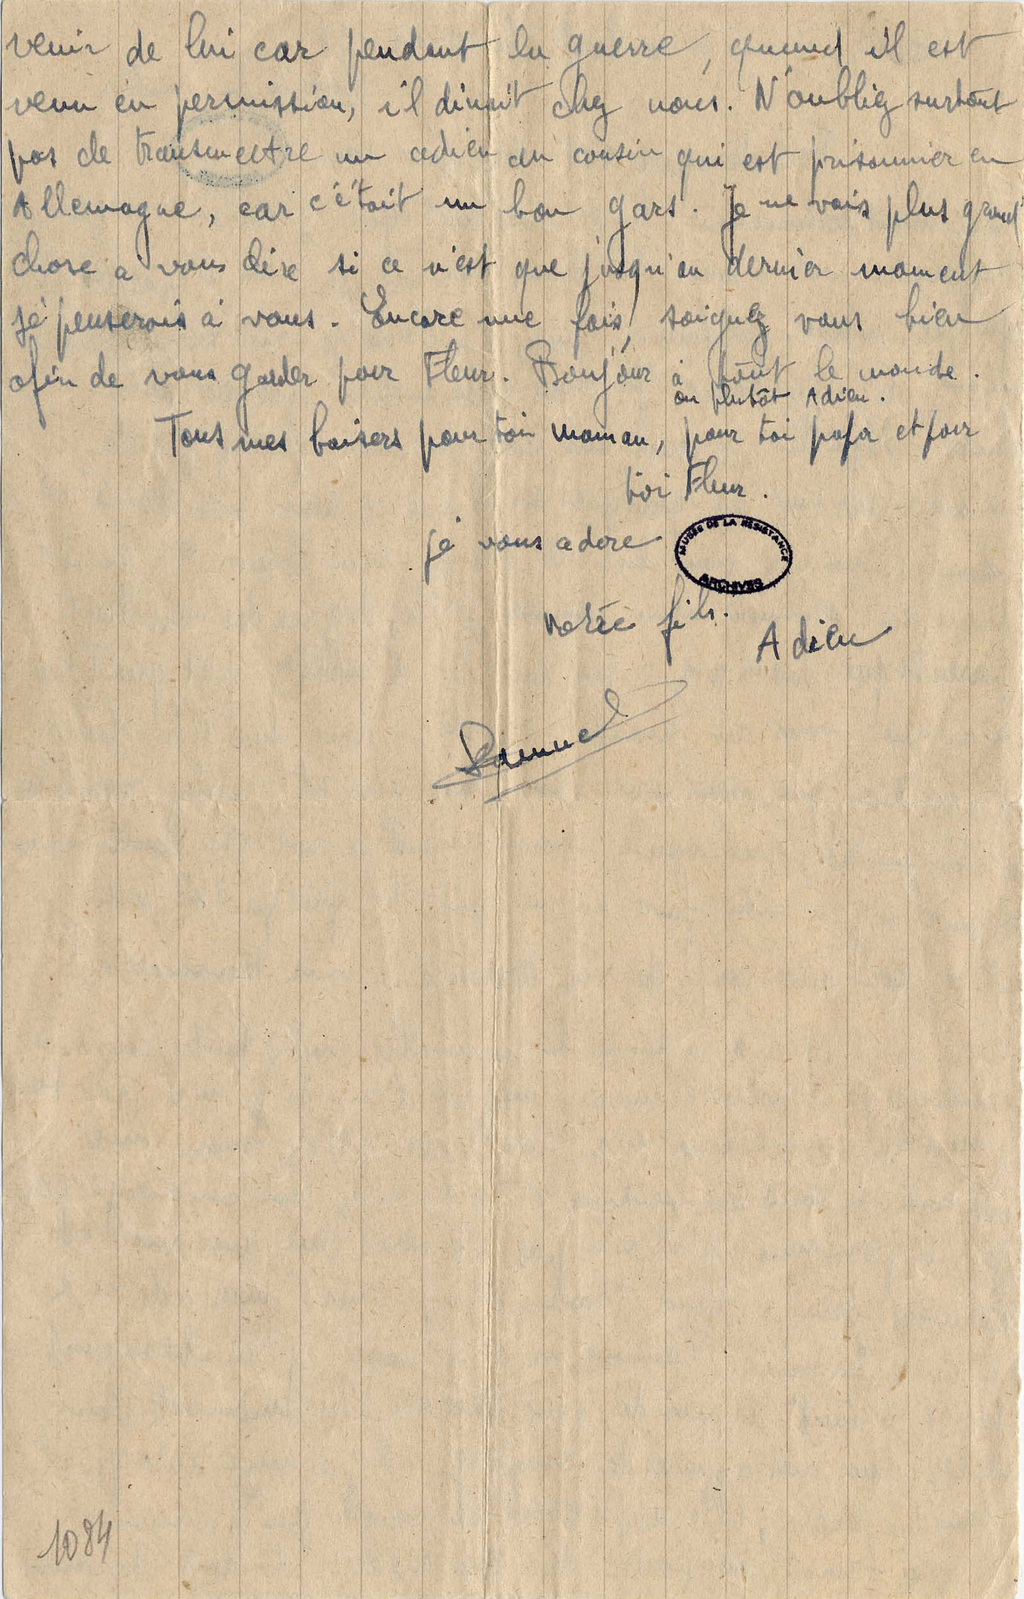 venir de lui car pendant la guerre, quand il est
venu en permission, il dinait chez nous. N'oubliez surtout
pas de transmettre un adieu au cousin qui est prisonnier en
Allemagne, car c'était un bon gars. Je ne vois plus grand
chose à vous dire si ce n'est que jusqu'au dernier moment
je penserais à vous. Encore une fois, soignez vous bien
afin de vous garder pour Fleur. Bonjour à tout le monde.
ou plutôt Adieu.
Tous mes baisers pour toi maman, pour toi papa et pour
toi Fleur.
Je vous adore
MUSÉE DE LA RÉSISTANCE
ARCHIVES
Votre fils.
Adieu
Samuel
1084